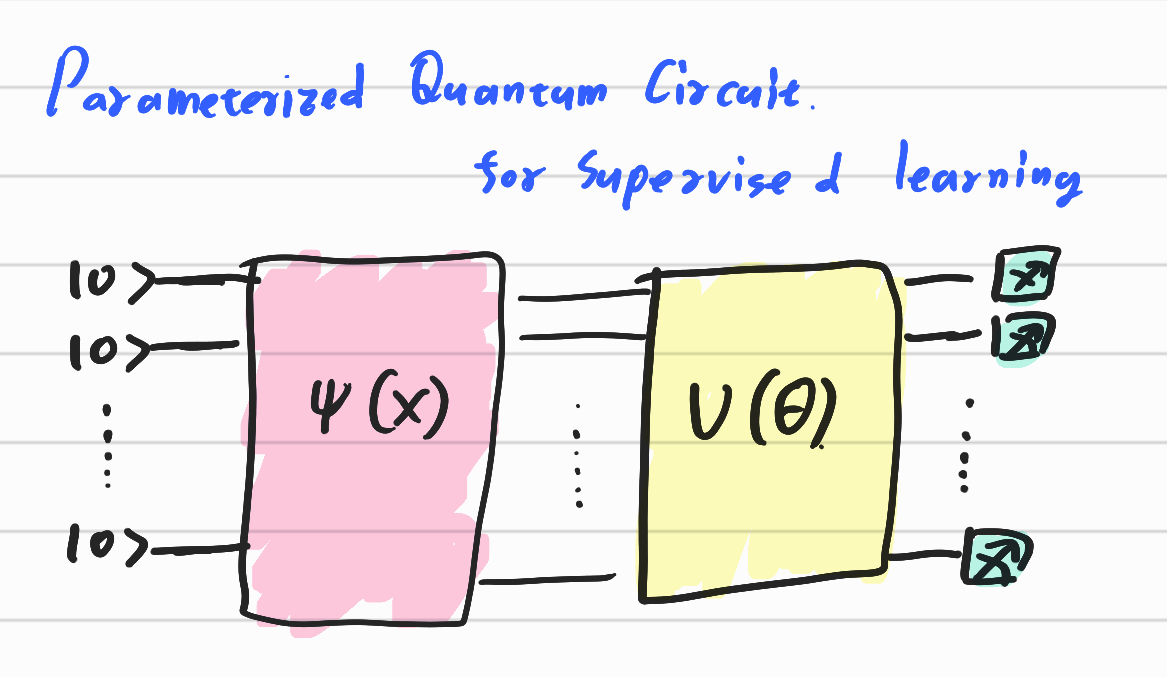 Parameterized Quantum Circuit.
for supervised learning
|0>
|0>
|0>
Ψ(x)
U(θ)